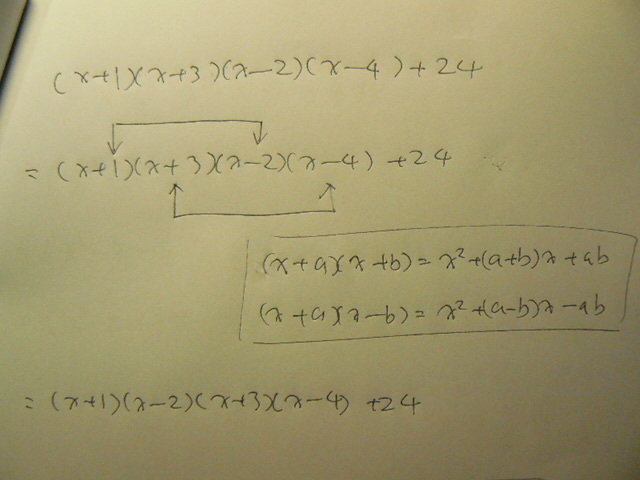 (x+1)(x+3)(x-2)(x-4)+24
=(x+1)(x+3)(x-2)(x-4)+24
(x+a)(x+b)=x²+(a+b)x+ab
(x+a)(x-b)=x²+(a-b)x-ab
=(x+1)(x-2)(x+3)(x-4)+24